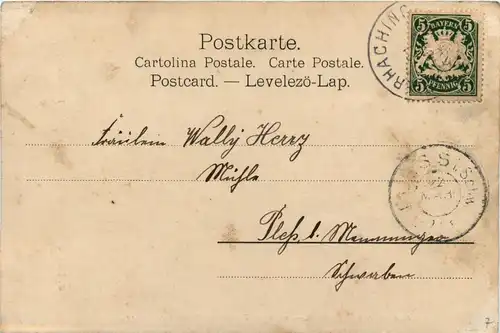 Postkarte.
Cartolina Postale. Carte Postale.
Postcard. — Levelezö-Lap.
RHACHING
5 BAYERN 5
5 PFENNIG 5
Fräulein Wally Herrz
Mühle
Pleß b. Memmingen
Schwaben
7